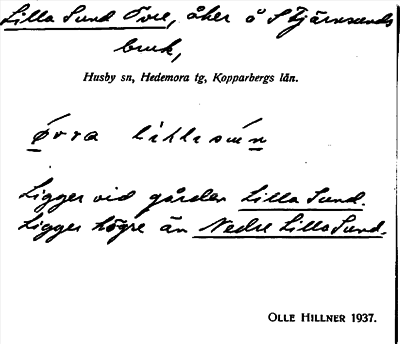 Lilla Sund Övre, åker å Stjärnsunds
bruk,
Husby sn, Hedemora tg, Kopparbergs län.
övra lillasun
Ligger vid gården Lilla Sund.
Ligger högre än Nedre Lilla Sund.
OLLE HILLNER 1937.